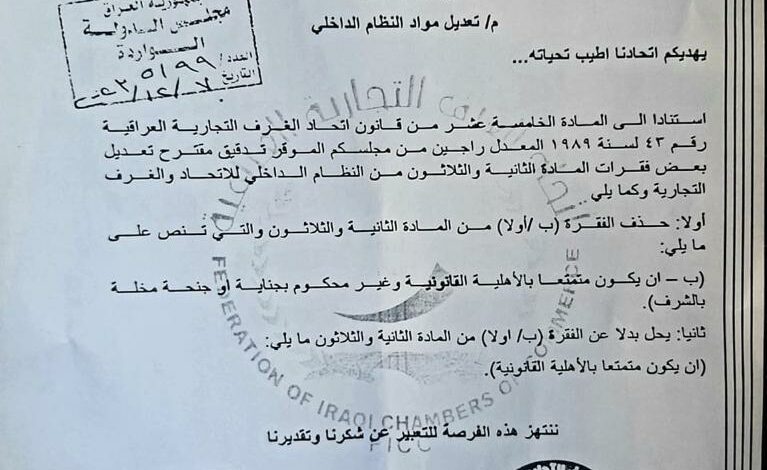 جمهورية العراق
مجلس الدولة
الواردة
العدد/ ٥١٩٩
التاريخ
م/ تعديل مواد النظام الداخلي
يهديكم اتحادنا اطيب تحياته...
استنادا الى المادة الخامسة عشر من قانون اتحاد الغرف التجارية العراقية
رقم ٤٣ لسنة ١٩٨٩ المعدل راجين من مجلسكم الموقر تدقيق مقترح تعديل
بعض فقرات المادة الثانية والثلاثون من النظام الداخلي للاتحاد والغرف
التجارية وكما يلي
أولا: حذف الفقرة (ب /أولا) من المادة الثانية والثلاثون والتي تنص على
ما يلي:
(ب – ان يكون متمتعا بالأهلية القانونية وغير محكوم بجناية أو جنحة مخلة
بالشرف).
ثانيا: يحل بدلا عن الفقرة (ب/ اولا) من المادة الثانية والثلاثون ما يلي:
(ان يكون متمتعا بالأهلية القانونية).
ننتهز هذه الفرصة للتعبير عن شكرنا وتقديرنا
FEDERATION OF IRAQI CHAMBERS OF COMMERCE
FICC